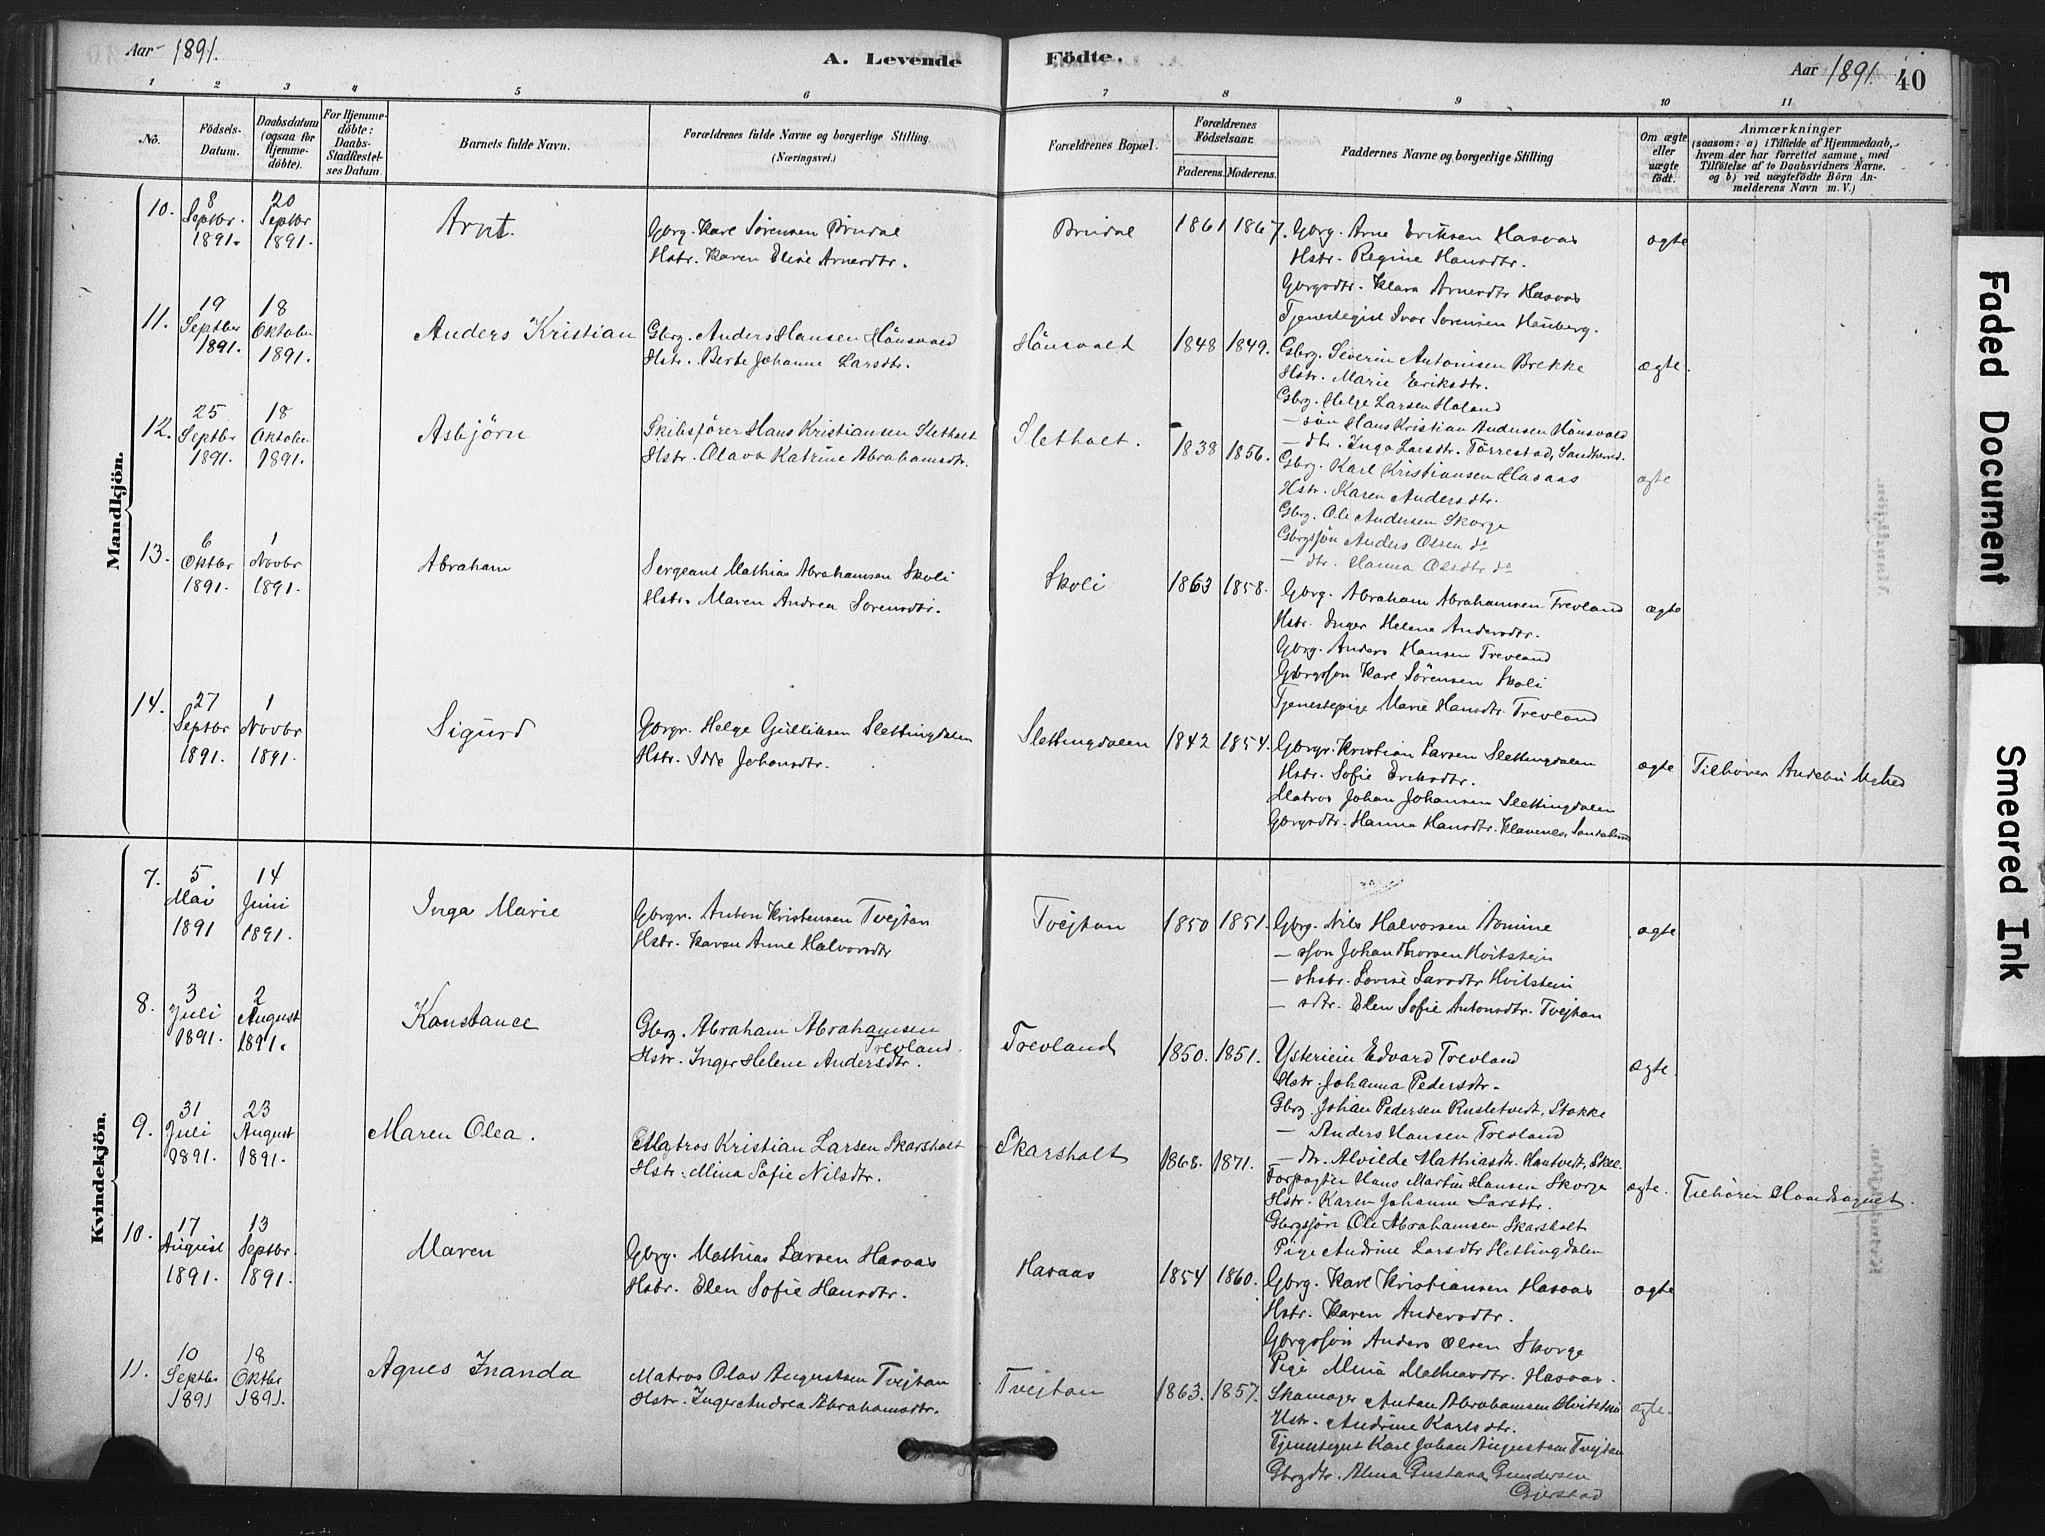 Aar 1891.
A. Levende Födte.
Aar 1891.
40
1 2 3 4 5 6 7 8 9 10 11
No.
Födsels-
Datum.
Daabsdatum
(ogsaa for
Hjemme-
döbte).
For Hjemme-
döbte:
Daabs-
Stadfæstel-
ses Datum.
Barnets fulde Navn.
Forældrenes fulde Navne og borgerlige Stilling
(Næringsvei.)
Forældrenes Bopæl.
Forældrenes
Födselsaar.
Faderens. Moderens.
Faddernes Navne og borgerlige Stilling
Om ægte
eller
uægte
födt.
Anmærkninger
(saasom: a) i Tilfælde af Hjemmedaab,
hvem der har forrettet samme, med
Tilföielse af to Daabsvidners Navne.
og b) ved uægtefödte Börn An-
melderens Navn m. V.)
Mandkjön.
10.
8
Septbr.
1891.
20
Septbr
1891.
Arnt.
Gbrg. Karl Sørensen Brudal
Hstr. Karen Elise Arnesdtr.
Brudal
1861 1867.
Gbrg. Arne Eriksen Hasaas
Hstr. Regine Hansdtr.
Gbrgsdtr. Klara Arnesdtr Hasaas
Tjenestegut Ivar Sørensen Hauberg.
ægte
11.
19
Septber
1891.
18
Oktober
1891.
Anders Kristian
Gbrg. Anders Hansen Hönsvald
Hstr. Berte Johanne Larsdtr.
Hönsvald
1848 1849.
Gbrg. Severin Antonisen Brekke
Hstr. Marie Eriksdtr.
Gbrg. Helge Larsen Holand
— søn Hans Kristian Andersen Hönsvald
— dtr. Inga Larsdtr. Tørrestad, Sandherred.
ægte.
12.
25
Septbr
1891.
18
Oktober
1891.
Asbjörn
Skibsfører Hans Kristiansen Sletholt
Hstr. Olava Katrine Abrahamsdtr.
Sletholt.
1838 1856.
Gbrg. Karl Kristiansen Hasaas
Hstr. Karen Andersdtr.
Gbrg. Ole Andersen Skorge
Gbrgsjøn Anders Olsen do
— dtr. Hanna Olsdtr do
ægte
13.
6
Oktbr
1891.
1
Novbr
1891.
Abraham
Sergeant Mathias Abrahamsen Skoli
Hstr. Maren Andrea Sørensdtr.
Skoli
1863 1858.
Gbrg. Abraham Abrahamsen Trevland
Hstr. Inger Helene Andersdtr.
Gbrg. Anders Hansen Trevland
Gbrgssøn Karl Sørensen Skoli
Tjenestepige Marie Hansdtr. Trevland
ægte
14.
27
Septbr
1891.
1
Novbr
1891.
Sigurd
Gbrgr. Helge Gulliksen Slettingdalen
Hstr. Idde Johansdtr.
Slettingdalen
1842 1854.
Gbrgr. Kristian Larsen Slettingdalen
Hstr. Sofie Eriksdtr.
Matros Johan Johansen Slettingdalen
Gbrgsdtr. Hanna Hansdtr. Klavenes, Sandeherred
ægte
Tilhører Andebu Mghed
Kvindekjön.
7.
5
Mai
1891
14
Juni
1891.
Inga Marie
Gbrgr. Anton Kristensen Tvejtan
Hstr. Karen Anne Halvorsdtr
Tvejtan
1850 1851.
Gbrg. Nils Halvorsen Aomine
— søn Johan Thorsen Hvitstein
— shstr. Lovise Larsdtr Hvitstein
— sdtr. Elen Sofie Antonsdtr. Tvejtan
ægte
8.
3
Juli
1891.
2
August
1891.
Konstance
Gbrg. Abraham Abrahamsen
Trevland.
Hstr. Inger Helene Andersdtr.
Trevland
1850. 1851.
Edvard Trevland
Hstr. Johanna Pedersdtr.
Gbrg. Johan Pedersen Rusletvedt, Stokke
— Anders Hansen Trevland
— dtr. Alvilde Mathiasdtr. Hantvedt, Skee.
ægte.
9.
31
Juli
1891.
23
August
1891.
Maren Olea.
Matros Kristian Larsen Skarsholt
Hstr. Mina Sofie Nilsdtr.
Skarsholt
1868. 1871.
Forpagter Hans Martin Hansen Skorge
Hstr. Karen Johanne Larsdtr.
Gbrgsjøn Ole Abrahamsen Skarsholt
Pige Andrine Larsdtr Slettingdalen
ægte.
Tilhører Haandsognet.
10.
17
August
1891.
13
Septbr.
1891.
Maren
Gbrg. Mathias Larsen Hasaas
Hstr. Elen Sofie Hansdtr.
Hasaas
1854 1860.
Gbrg. Karl Kristiansen Hasaas
Hstr. Karen Andersdtr.
Gbrgssøn Anders Olsen Skorge
Pige Mina Mathiasdtr. Hasaas.
ægte
11.
10
Septbr
1891
18
Oktbr
1891.
Agnes Inanda
Matros Olav Augustsen Tvejtan
Hstr. Inger Andrea Abrahamsdtr.
Tvejtan
1863. 1857.
Skomager Anton Abrahamsen Hvitstein
Hstr. Andrine Karlsdtr.
Tjenestegut Karl Johan Augustsen Tvejtan
Gbrgdtr. Alma Gustava Gundersen
Gjerstad
ægte.
Faded Document
Smeared Ink